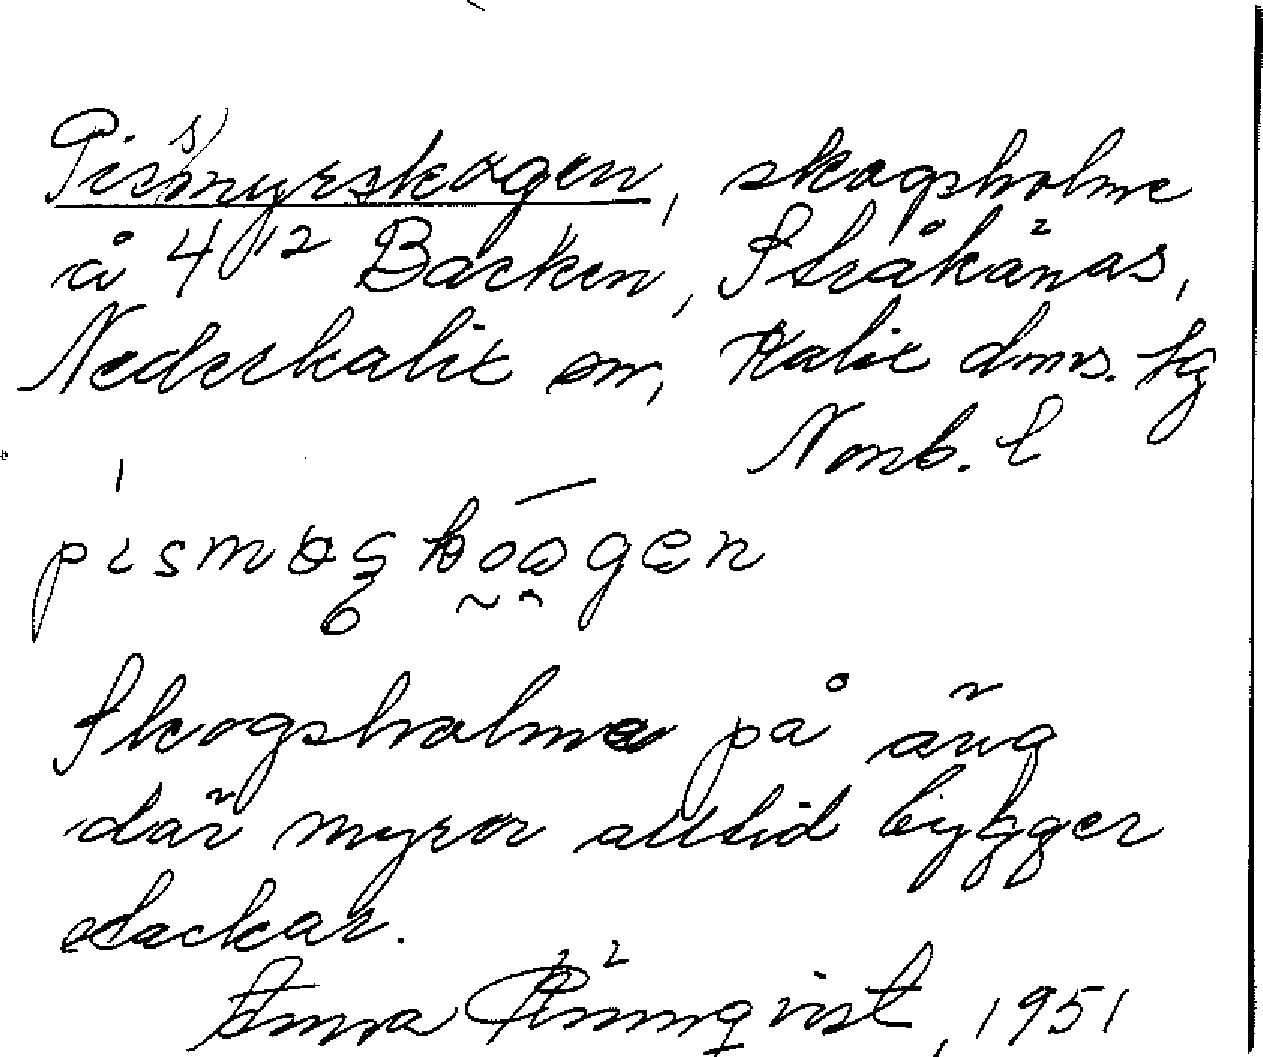 Pis(s)myrskogen, skogsholme
å 4⁄12 Backen, Stråkänäs,
Nederkalix sn, Kalix dms. tg
Norrb. l
Skogsholme på äng
där myror alltid bygger
stackar.
Anna Rönnqvist, 1951